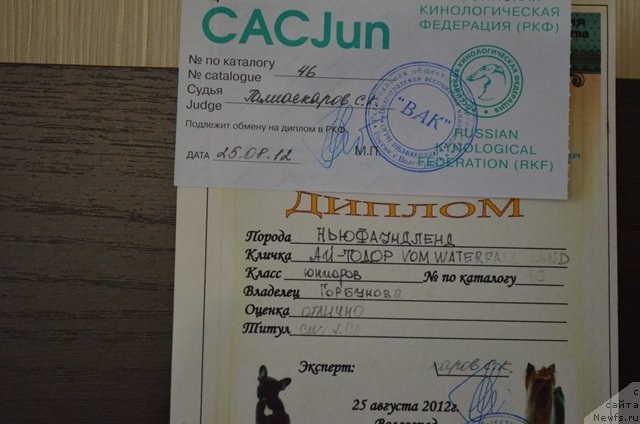 КИНОЛОГИЧЕСКАЯ
ФЕДЕРАЦИЯ (РКФ)
CACJun
№ по каталогу 46
№ catalogue
Судья Галиаскаров С.К.
Judge
Подлежит обмену на диплом в РКФ.
М.П.
ДАТА 25.08.12
"ВАК"
RUSSIAN
KYNOLOGICAL
FEDERATION (RKF)
ДИПЛОМ
Порода НЬЮФАУНДЛЕНД
Кличка АЙ-ТОДОР VOM WATERFALL LAND
Класс юниоров № по каталогу 46
Владелец Горбунова
Оценка ОТЛИЧНО
Титул
Эксперт:
25 августа 2012г.
Волгоград
с
сайта
Newfs.ru